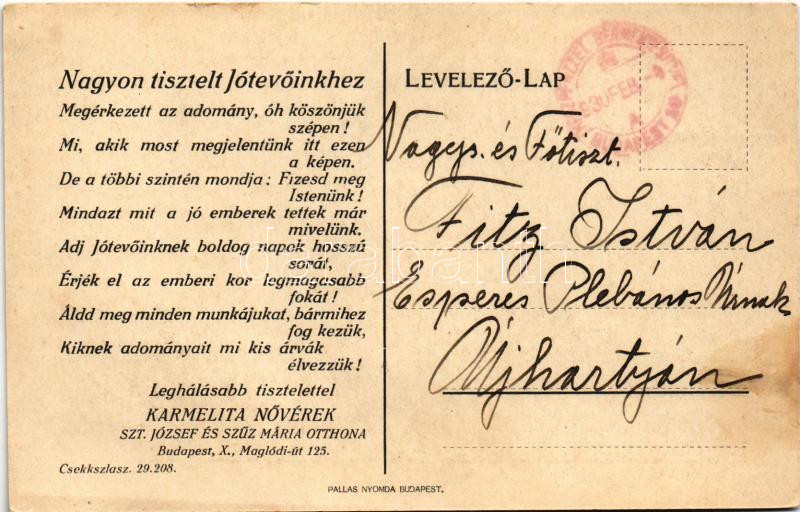 Nagyon tisztelt Jótevőinkhez
Megérkezett az adomány, óh köszönjük
szépen!
Mi, akik most megjelentünk itt ezen
a képen.
De a többi szintén mondja: Fizesd meg
Istenünk!
Mindazt mit a jó emberek tettek már
mivelünk.
Adj Jótevőinknek boldog napok hosszú
sorát,
Érjék el az emberi kor legmagasabb
fokát!
Áldd meg minden munkájukat, bármihez
fog kezük,
Kiknek adományait mi kis árvák
élvezzük!
Leghálásabb tisztelettel
KARMELITA NŐVÉREK
SZT. JÓZSEF ÉS SZŰZ MÁRIA OTTHONA
Budapest, X., Maglódi-út 125.
Csekkszlasz. 29.208.
LEVELEZŐ-LAP
Nagys. és Főtiszt.
Fitz István
Esperes Plebános Úrnak
Újhartyán
PALLAS NYOMDA BUDAPEST.
BUDAPEST
darabanth